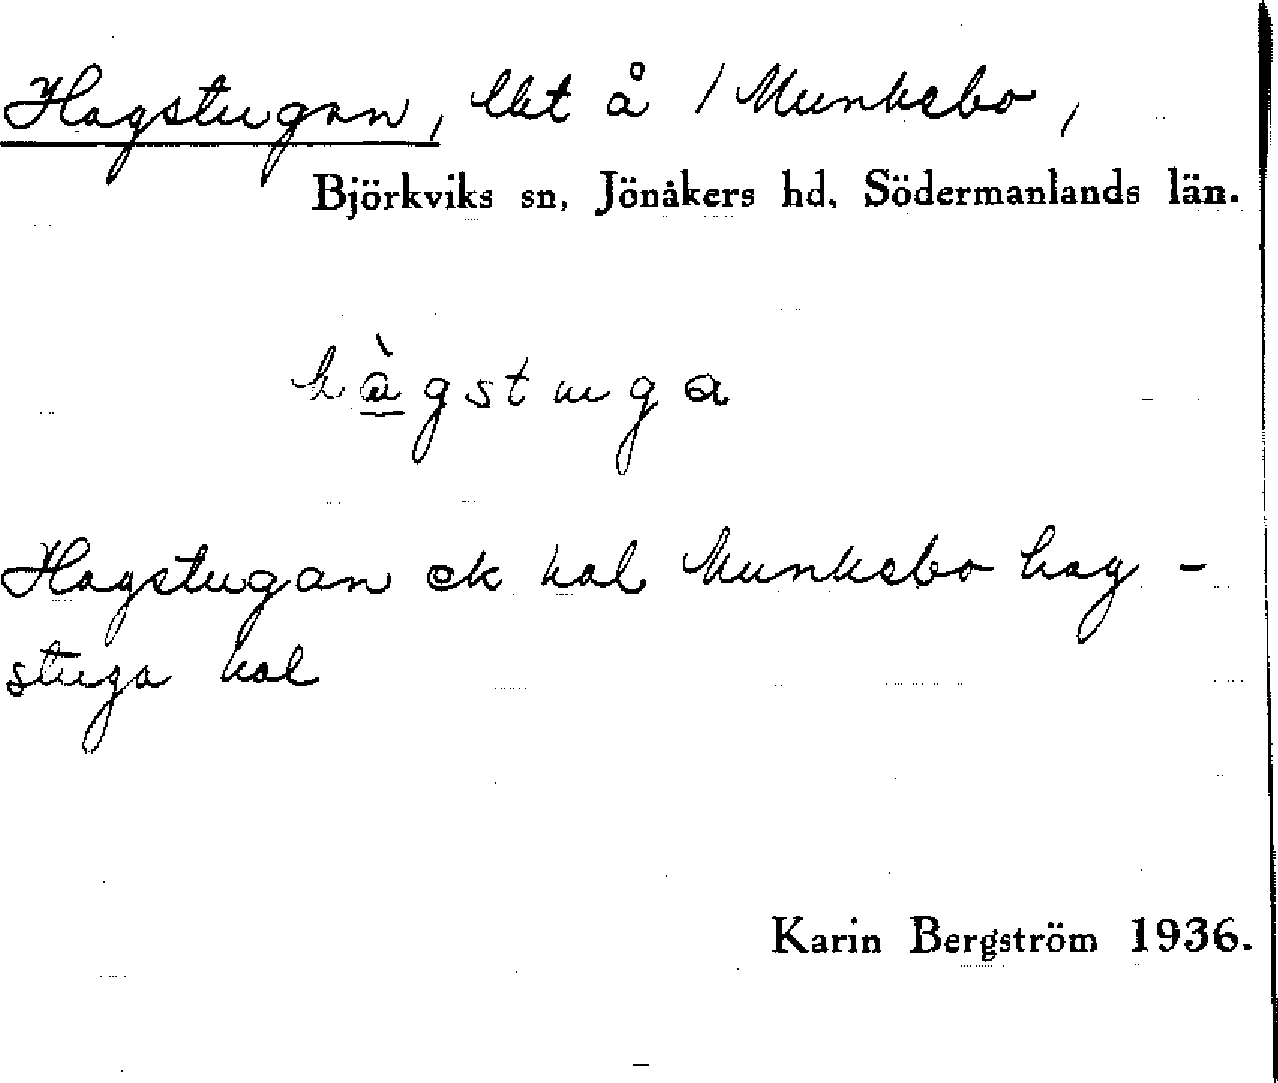 Hagstugan, lht å / Munkebo,
Björkviks sn, Jönåkers hd. Södermanlands län.
hàgstuga
Hagstugan ek kal Munkebo hag-
stuga kal
Karin Bergström 1936.